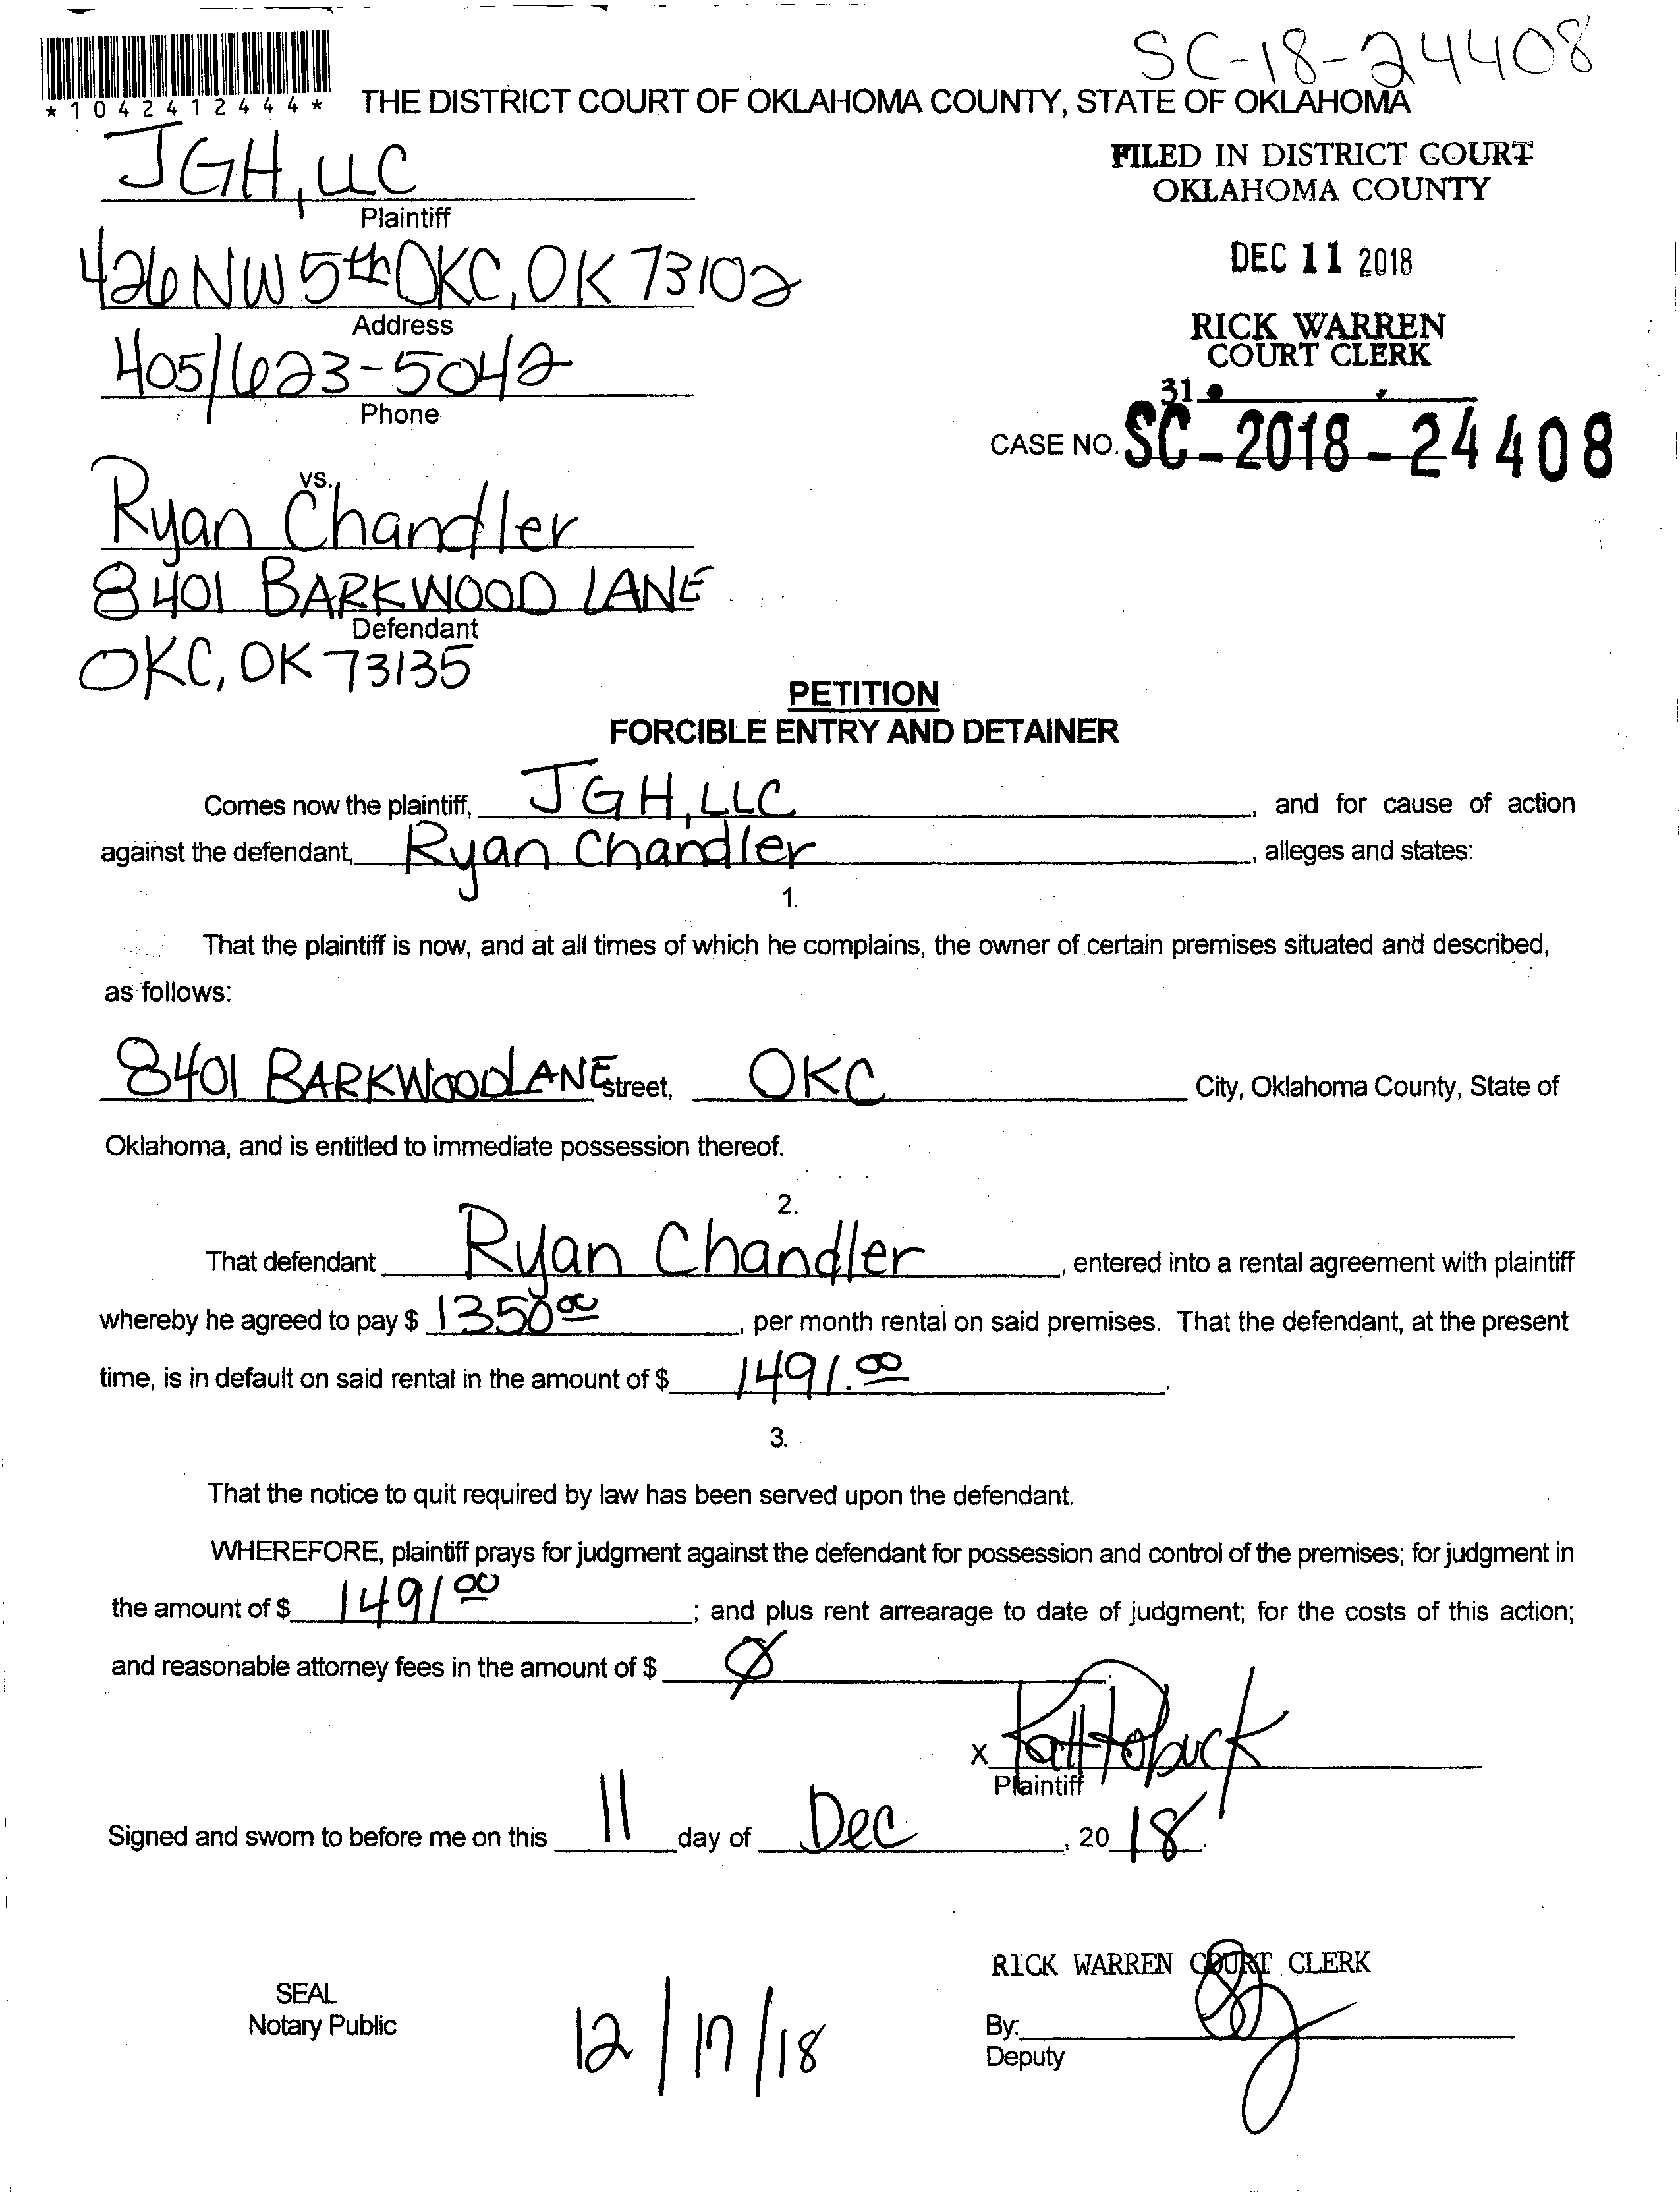 SC-18-24408
*1042412444*
THE DISTRICT COURT OF OKLAHOMA COUNTY, STATE OF OKLAHOMA
JGH, LLC
Plaintiff
FILED IN DISTRICT COURT
OKLAHOMA COUNTY
426 NW 5th OKC, OK 73102
Address
DEC 11 2018
405/623-5042
Phone
RICK WARREN
COURT CLERK
31
CASE NO. SC-2018-24408
vs.
Ryan Chandler
8401 BARKWOOD LANE
Defendant
OKC, OK 73135
PETITION
FORCIBLE ENTRY AND DETAINER
Comes now the plaintiff, JGH, LLC, and for cause of action
against the defendant, Ryan Chandler, alleges and states:
1.
That the plaintiff is now, and at all times of which he complains, the owner of certain premises situated and described,
as follows:
8401 BARKWOOD LANE street, OKC City, Oklahoma County, State of
Oklahoma, and is entitled to immediate possession thereof.
2.
That defendant Ryan Chandler, entered into a rental agreement with plaintiff
whereby he agreed to pay $ 1350 00, per month rental on said premises. That the defendant, at the present
time, is in default on said rental in the amount of $ 1491.00.
3.
That the notice to quit required by law has been served upon the defendant.
WHEREFORE, plaintiff prays for judgment against the defendant for possession and control of the premises; for judgment in
the amount of $ 1491 00; and plus rent arrearage to date of judgment; for the costs of this action;
and reasonable attorney fees in the amount of $ Ø.
X
Plaintiff
Signed and sworn to before me on this 11 day of Dec, 20 18.
RICK WARREN COURT CLERK
SEAL
Notary Public
12/17/18
By:
Deputy